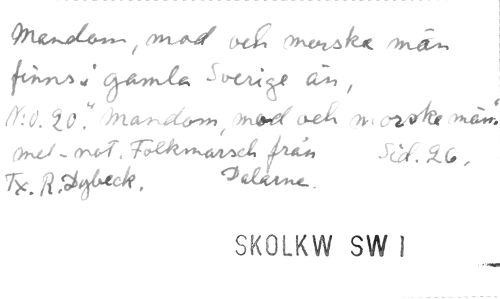 Mandom, mod och morska män
finns i gamla Sverige än,
N:o. 20. "Mandom, mod och morske män"
mel-not. Folkmarsch från Sid. 26.
Tx. R. Dybeck. Dalarne.
SKOLKW SW 1